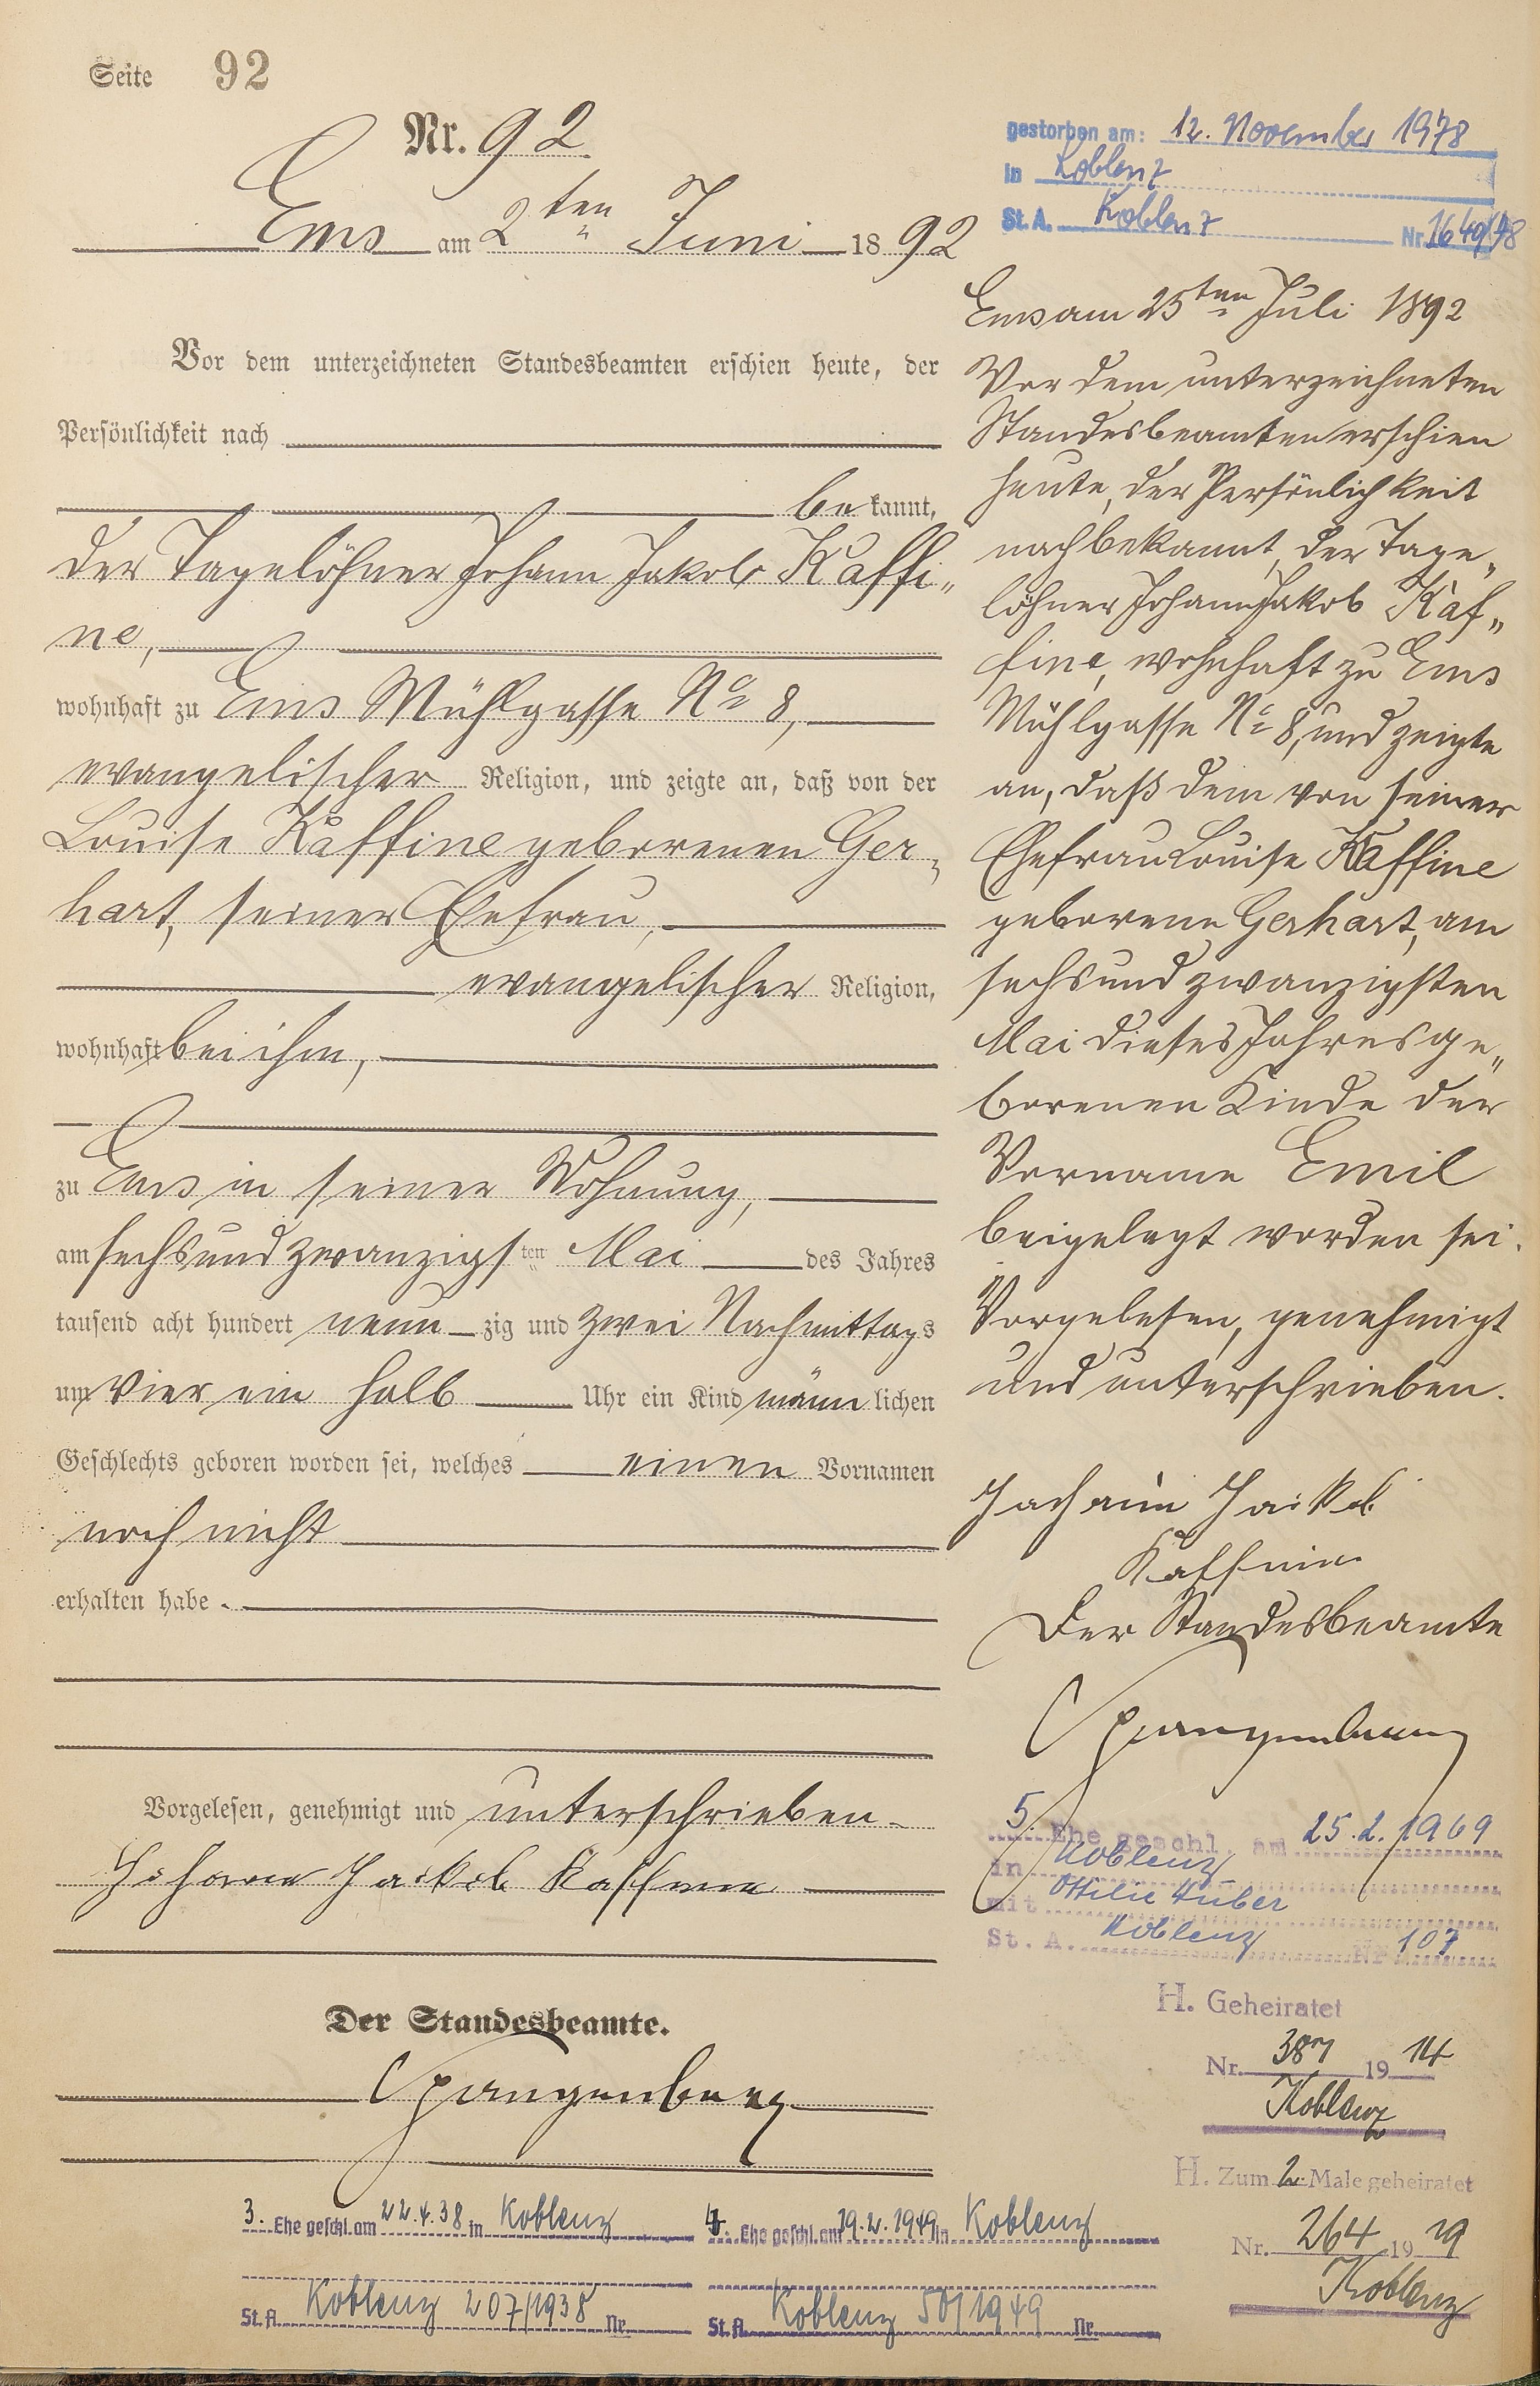 Seite 92
Nr. 92
Ems am 2ten Juni 1892
Vor dem unterzeichneten Standesbeamten erschien heute, der
Persönlichkeit nach
be kannt,
der Tagelöhner Johann Jakob Kaffi„
ne,
wohnhaft zu Ems Mühlgasse No 8,
evangelischer Religion, und zeigte an, daß von der
Louise Kaffine geborenen Ger„
hart, seiner Ehefrau,
evangelischer Religion,
wohnhaft bei ihm,
zu Ems in seiner Wohnung,
am sechsundzwanzigsten Mai des Jahres
tausend acht hundert neun zig und zwei Nachmittags
um vier ein halb Uhr ein Kind männ lichen
Geschlechts geboren worden sei, welches einen Vornamen
noch nicht
erhalten habe.
Vorgelesen, genehmigt und unterschrieben.
Johann Jakob Kaffine
Der Standesbeamte.
Spangenberg
3. Ehe geschl. am 22.4.38 in Koblenz
St. A. Koblenz 207/1938 Nr.
4. Ehe geschl. am 19.2.1949 in Koblenz
St. A. Koblenz 50/1949 Nr.
gestorben am: 12. November 1978
in Koblenz
St. A. Koblenz Nr. 1640/78
Ems am 25ten Juli 1892
Vor dem unterzeichneten
Standesbeamten erschien
heute, der Persönlichkeit
nach bekannt, der Tage„
löhner Johann Jakob Kaf„
fine, wohnhaft zu Ems
Mühlgasse No 8, und zeigte
an, daß dem von seiner
Ehefrau Louise Kaffine
geborene Gerhart, am
sechsundzwanzigsten
Mai dieses Jahres ge„
borenen Kinde der
Vorname Emil
beigelegt worden sei.
Vorgelesen, genehmigt
und unterschrieben.
Johann Jakob
Kaffine
Der Standesbeamte
Spangenberg
5. Ehe geschl. am 25.2.1969
in Koblenz
mit Ottilie Huber
St. A. Koblenz Nr 107
H. Geheiratet
Nr. 387 1914
Koblenz
H. Zum 2. Male geheiratet
Nr. 264 1919
Koblenz